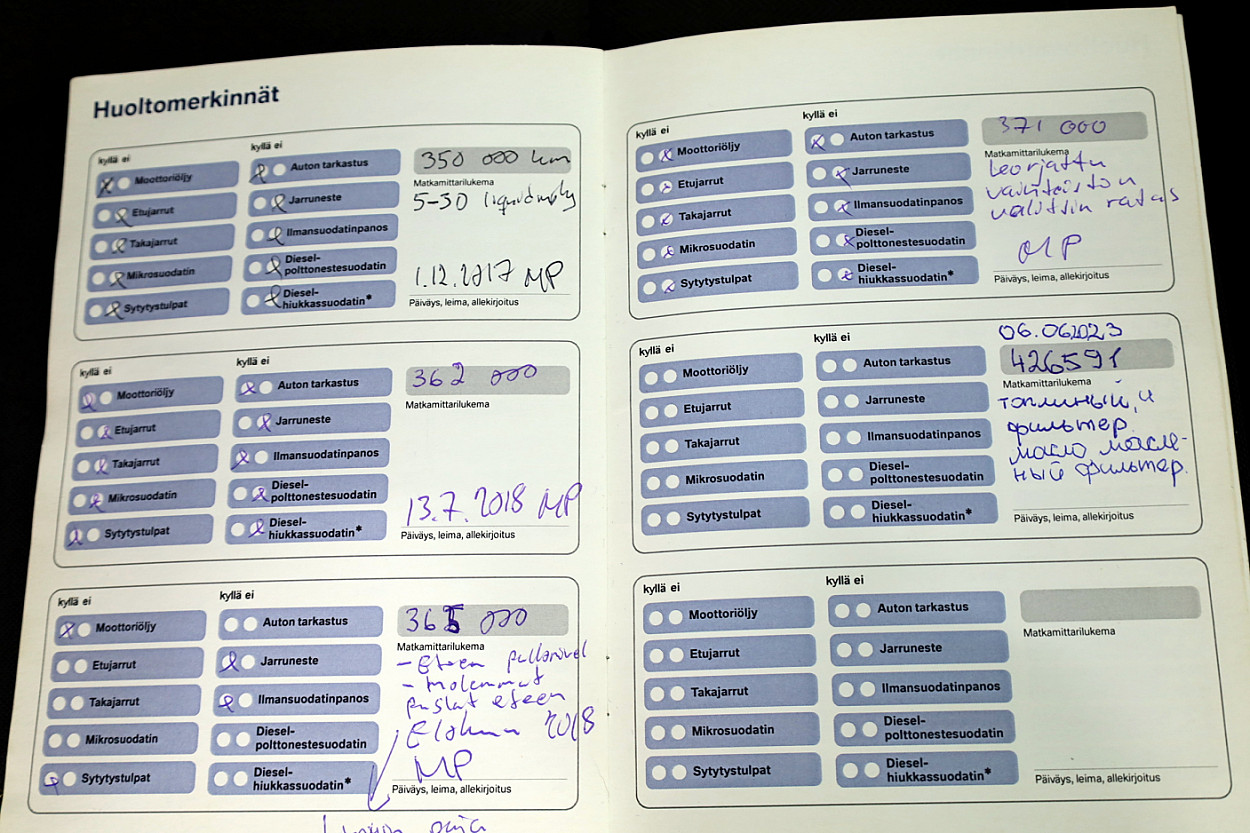 Huoltomerkinnät
kyllä ei
kyllä ei
Moottoriöljy
Auton tarkastus
350 000 km
Matkamittarilukema
Etujarrut
Jarruneste
5-30 liquidmoly
Takajarrut
Ilmansuodatinpanos
Mikrosuodatin
Diesel-
polttonestesuodatin
1.12.2017 MP
Sytytystulpat
Diesel-
hiukkassuodatin*
Päiväys, leima, allekirjoitus
kyllä ei
kyllä ei
Moottoriöljy
Auton tarkastus
362 000
Matkamittarilukema
Etujarrut
Jarruneste
Takajarrut
Ilmansuodatinpanos
Mikrosuodatin
Diesel-
polttonestesuodatin
13.7.2018 MP
Sytytystulpat
Diesel-
hiukkassuodatin*
Päiväys, leima, allekirjoitus
kyllä ei
kyllä ei
Moottoriöljy
Auton tarkastus
365 000
Matkamittarilukema
Etujarrut
Jarruneste
- Eteen pallonivel
- Molemmat
Takajarrut
Ilmansuodatinpanos
puslat eteen
Mikrosuodatin
Diesel-
polttonestesuodatin
Elokuu 2018
MP
Sytytystulpat
Diesel-
hiukkassuodatin*
Päiväys, leima, allekirjoitus
kyllä ei
kyllä ei
Moottoriöljy
Auton tarkastus
371 000
Matkamittarilukema
Etujarrut
Jarruneste
korjattu
vaihteiston
Takajarrut
Ilmansuodatinpanos
valitsin ratas
Mikrosuodatin
Diesel-
polttonestesuodatin
MP
Sytytystulpat
Diesel-
hiukkassuodatin*
Päiväys, leima, allekirjoitus
kyllä ei
kyllä ei
06.062023
Moottoriöljy
Auton tarkastus
426591
Matkamittarilukema
Etujarrut
Jarruneste
топлиный, и
фильтер.
Takajarrut
Ilmansuodatinpanos
масло масле-
Mikrosuodatin
Diesel-
polttonestesuodatin
ный фильтер.
Sytytystulpat
Diesel-
hiukkassuodatin*
Päiväys, leima, allekirjoitus
kyllä ei
kyllä ei
Moottoriöljy
Auton tarkastus
Matkamittarilukema
Etujarrut
Jarruneste
Takajarrut
Ilmansuodatinpanos
Mikrosuodatin
Diesel-
polttonestesuodatin
Sytytystulpat
Diesel-
hiukkassuodatin*
Päiväys, leima, allekirjoitus